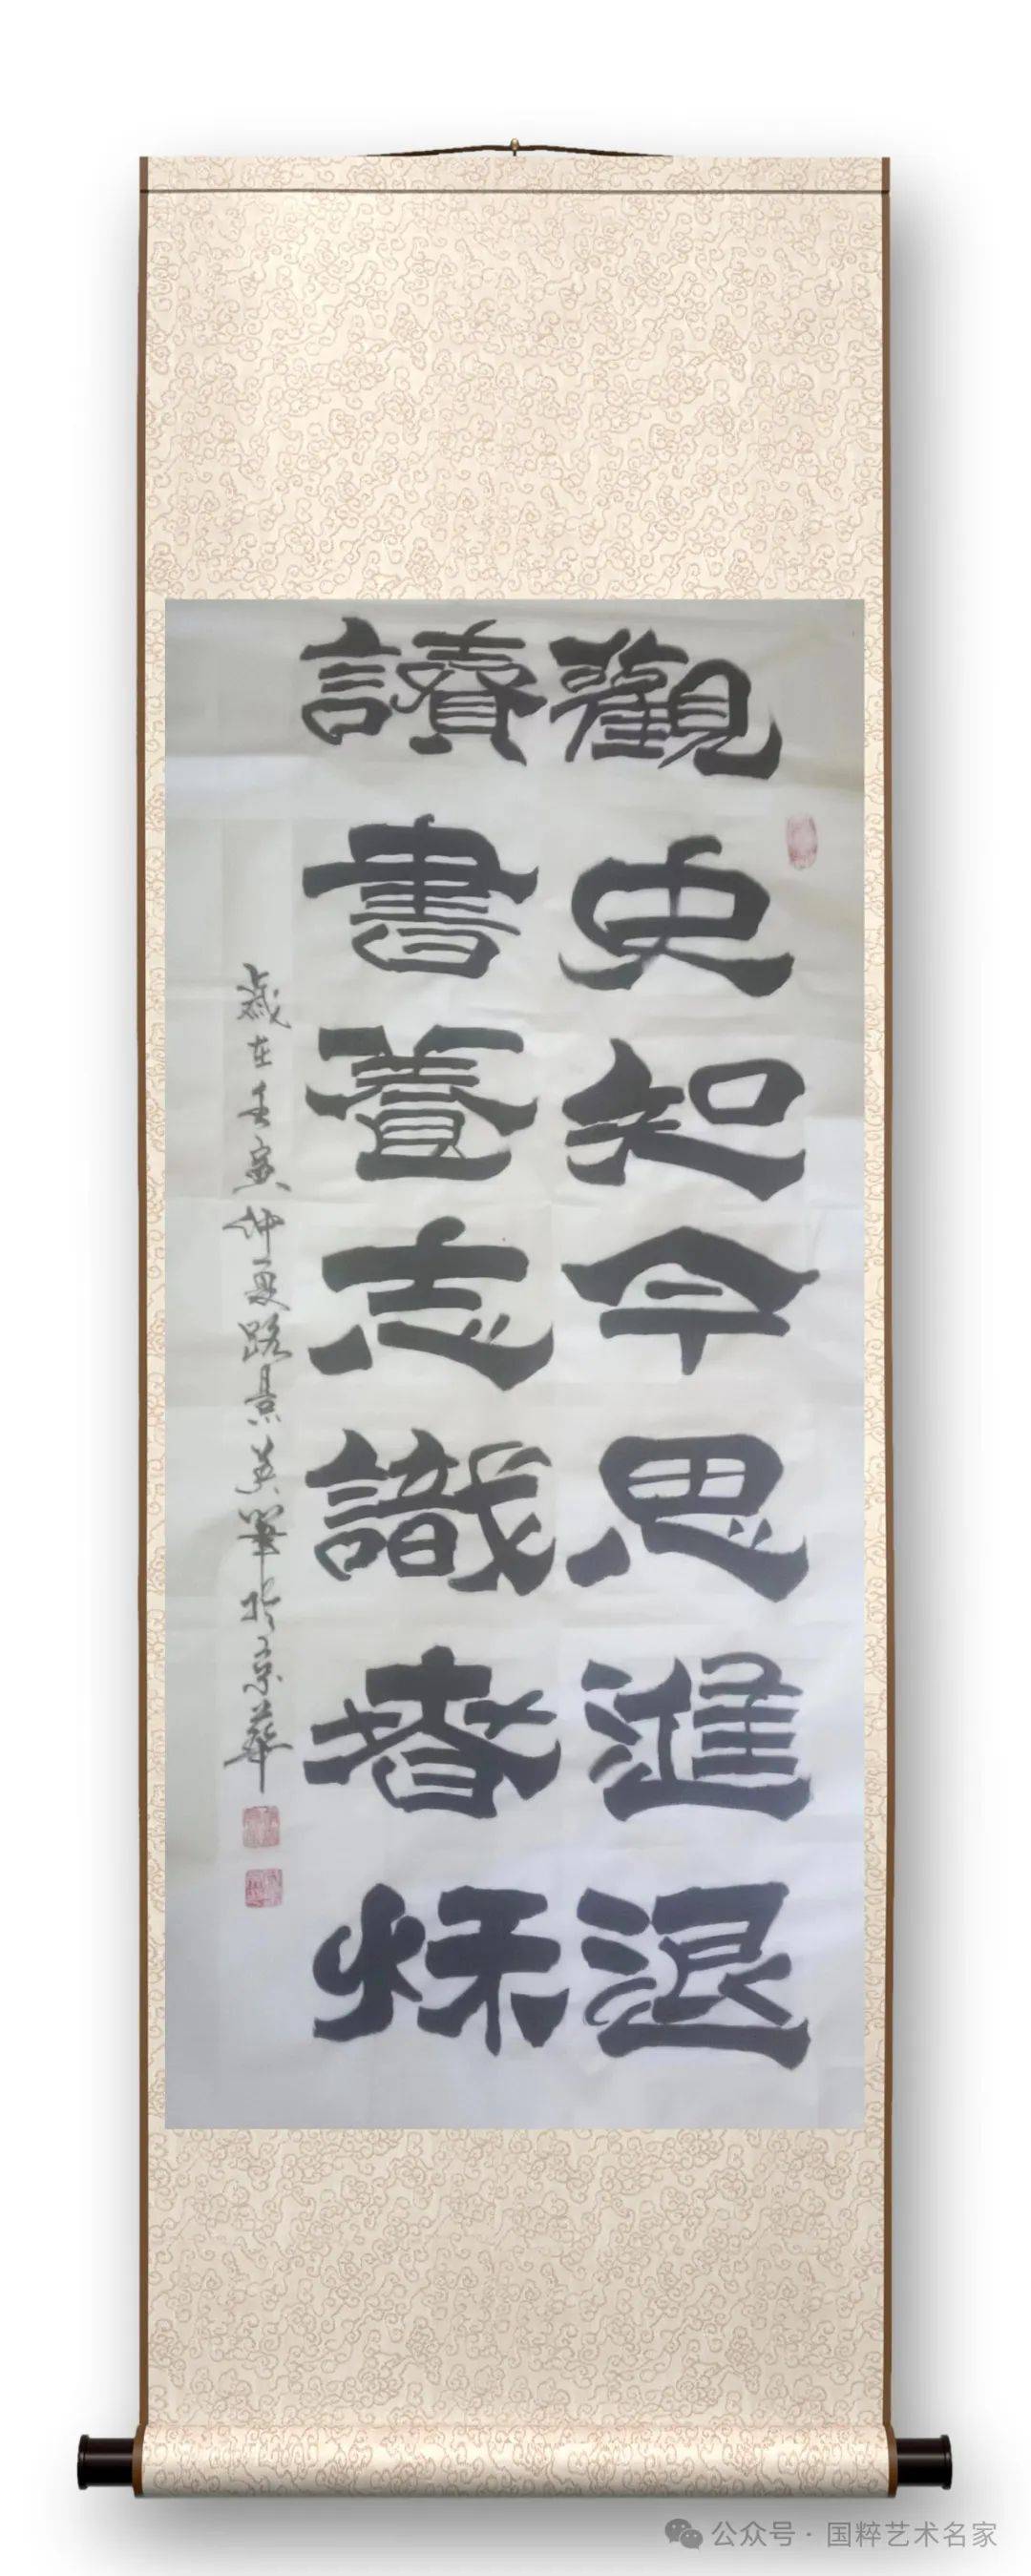 觀史知今思進退
讀書養志識春秋
歲在壬寅仲夏路景英筆於京華
公众号·国粹艺术名家